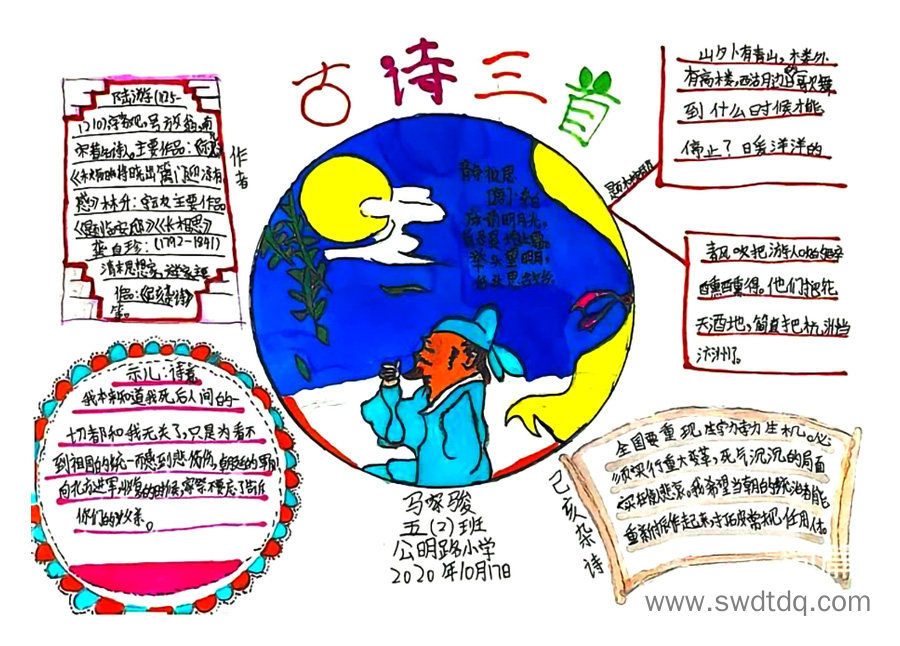 古诗三首
陆游(1125-
1210)字务观,号放翁,南
宋著名诗人。主要作品:《示儿》
《秋夜将晓出篱门迎凉有
感》林升:主要作品
《题临安邸》《长相思》
龚自珍:(1792-1841)
清末思想家,
作品:《己亥杂诗》
等。
作者
静夜思
李白
床前明月光,
疑是地上霜。
举头望明月,
低头思故乡。
题临安邸
山外有青山,楼外
有高楼,西湖边的歌舞
到什么时候才能
停止?暖洋洋的
春风吹把游人吹的
醺醺得。他们
天酒地,简直把杭州当
汴州了。
示儿:诗意
我本来知道我死后人间的一
切都和我无关了,只是为看不
到祖国的统一而感到悲伤
你们的父亲。
马琛骏
五(2)班
公明路小学
2020年10月17日
己亥杂诗
全国要重现生动生机。必
须实行重大变革,死气沉沉的局面
实在悲哀。我希望当朝的统治者能
重新振作起来
www.swdtdq.com